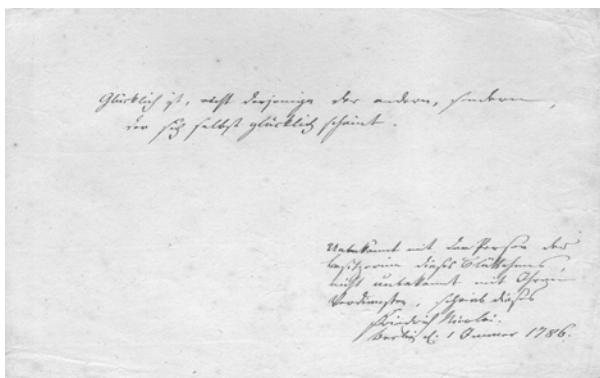 Glücklich ist, nicht derjenige der andern, sondern,
der sich selbst glücklich scheint.
Unbekannt mit der Person der
Besitzerin dieses Blättchens,
nicht unbekannt mit Ihren
Verdiensten, schrieb dieses
Friedrich Nicolai.
Berlin d. 1 Januar 1786.